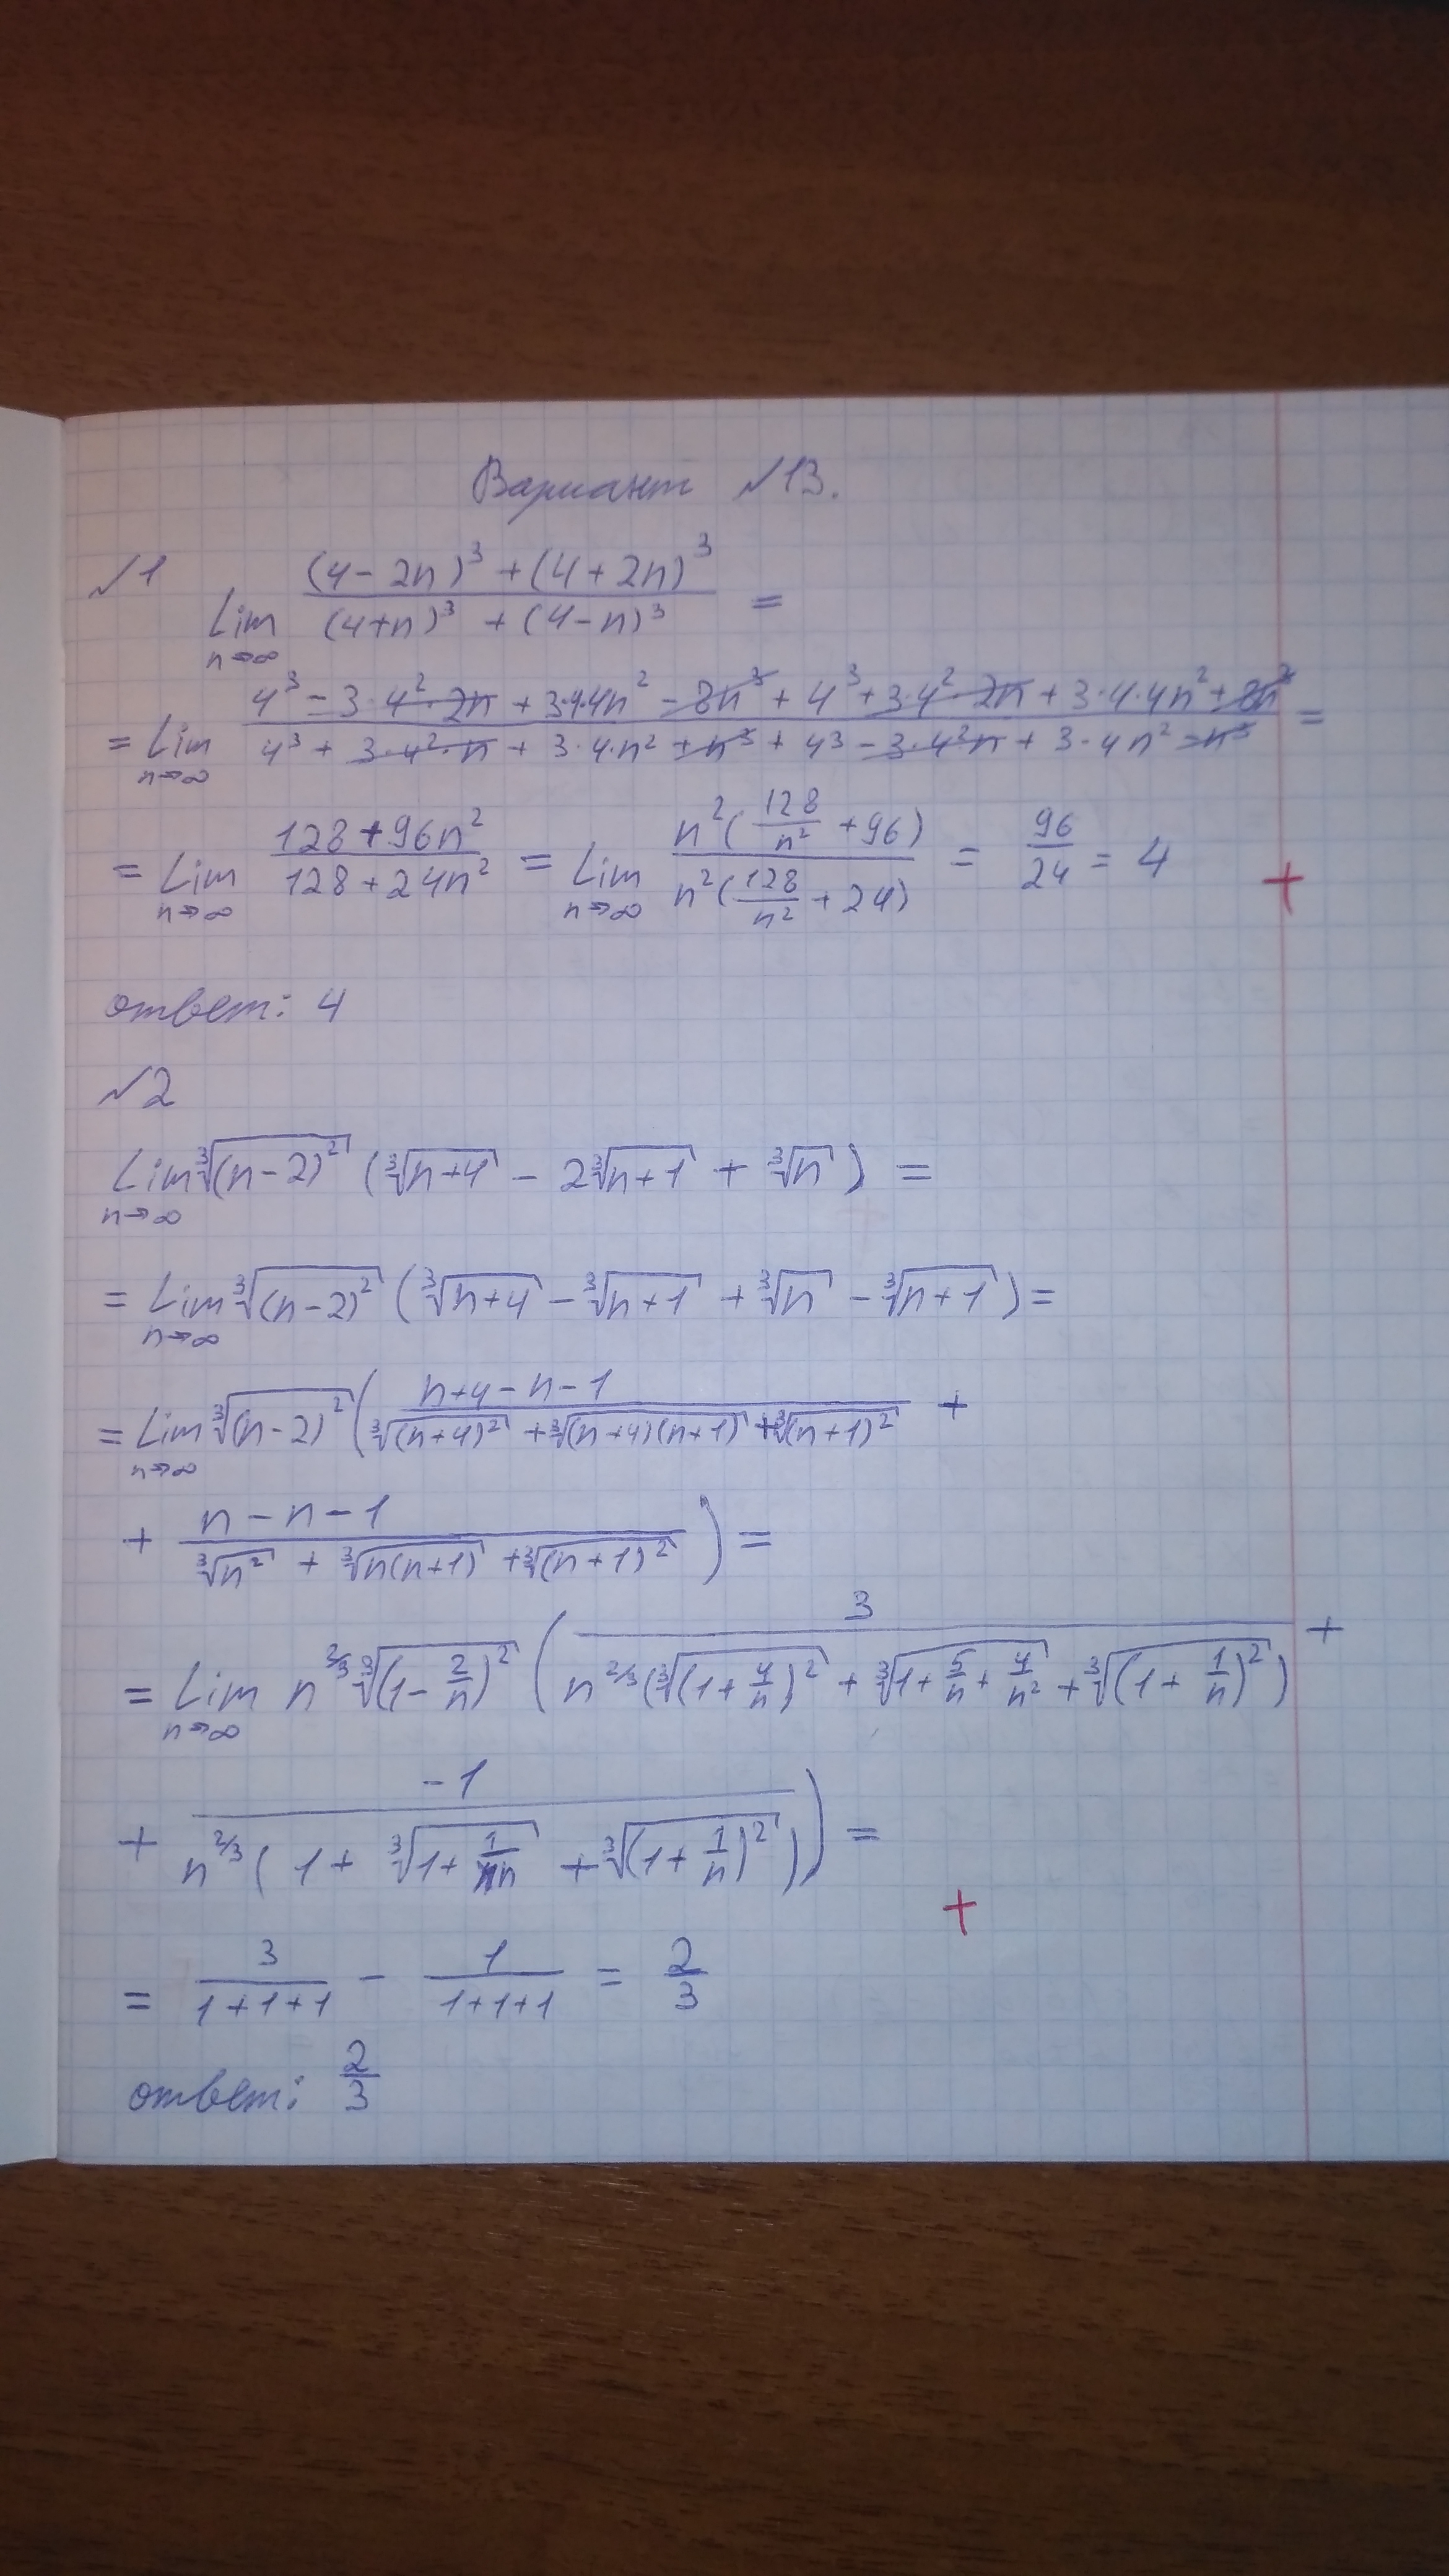 Вариант №13.
№1
Lim n→∞ ((4-2n)³+(4+2n)³)/((4+n)³+(4-n)³) =
= Lim n→∞ (4³-3·4²·2n+3·4·4n²-8n³+4³+3·4²·2n+3·4·4n²+8n³)/(4³+3·4²·n+3·4·n²+n³+4³-3·4²n+3·4n²-n³) =
= Lim n→∞ (128+96n²)/(128+24n²) = Lim n→∞ (n²(128/n²+96))/(n²(128/n²+24)) = 96/24 = 4 +
ответ: 4
№2
Lim n→∞ ∛(n-2)² (∛(n+4) - 2∛(n+1) + ∛n) =
= Lim n→∞ ∛(n-2)² (∛(n+4) - ∛(n+1) + ∛n - ∛(n+1)) =
= Lim n→∞ ∛(n-2)² ((n+4-n-1)/(∛(n+4)² + ∛((n+4)(n+1)) + ∛(n+1)²) +
+ (n-n-1)/(∛n² + ∛(n(n+1)) + ∛(n+1)²)) =
= Lim n→∞ n^(2/3) ∛(1-2/n)² (3/(n^(2/3)(∛(1+4/n)² + ∛(1+5/n+4/n²) + ∛(1+1/n)²)) +
+ -1/(n^(2/3)(1+∛(1+1/n) + ∛(1+1/n)²))) =
+
= 3/(1+1+1) - 1/(1+1+1) = 2/3
ответ: 2/3